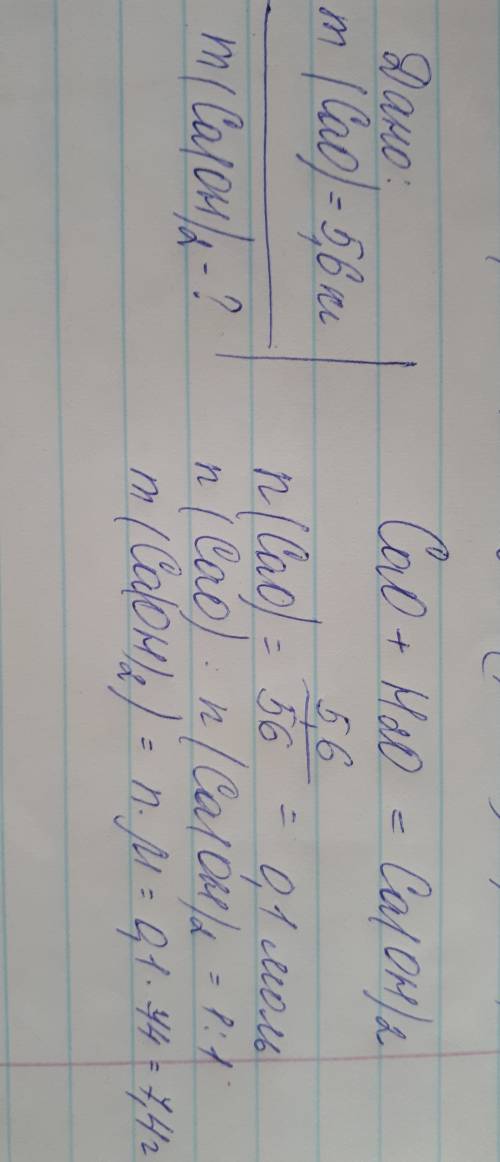 Дано:
m(CaO) = 5,6 кг
m(Ca(OH)2 - ?
CaO + H2O = Ca(OH)2
n(CaO) = 5,6/56 = 0,1 моль
n(CaO) : n(Ca(OH)2 = 1:1
m(Ca(OH)2) = n·M = 0,1·74 = 7,4г